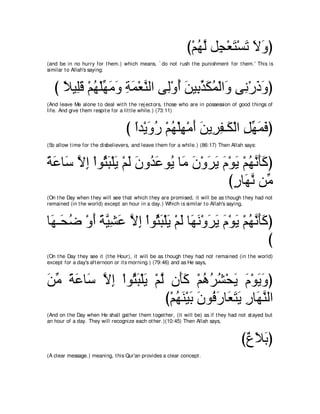 (وَلاَ تَسْتَعْجِل لَّهُمْ)
(and be in no hurry for them.) which means, `do not rush the punishment for them.' This is
similar to Allah's saying:
وَذَرْنِى وَالْمُكَذِّبِينَ أُوْلِى النَّعْمَةِ وَمَهِّلْهُمْ قَلِيلاً )
(And leave Me alone to deal with the rejectors, those who are in possession of good things of
life. And give them respite for a little while.) (73:11)
(فَمَهِّلِ الْكَـفِرِينَ أَمْهِلْهُمْ رُوَيْداً )
(So allow time for the disbelievers, and leave them for a while.) (86:17) Then Allah says:
(كَأَنَّهُمْ يَوْمَ يَرَوْنَ مَا يُوعَدُونَ لَمْ يَلْبَثُواْ إِلاَّ سَاعَةً
مِّن نَّهَارٍ)
(On the Day when they will see that which they are promised, it will be as though they had not
remained (in the world) except an hour in a day.) Which is similar to Allah's saying,
(كَأَنَّهُمْ يَوْمَ يَرَوْنَهَا لَمْ يَلْبَثُواْ إِلاَّ عَشِيَّةً أَوْ ضُحَـهَا
)
(On the Day they see it (the Hour), it will be as though they had not remained (in the world)
except for a day's afternoon or its morning.) (79:46) and as He says,
(وَيَوْمَ يَحْشُرُهُمْ كَأَن لَّمْ يَلْبَثُواْ إِلاَّ سَاعَةً مِّنَ
النَّهَارِ يَتَعَارَفُونَ بَيْنَهُمْ)
(And on the Day when He shall gather them together, (it will be) as if they had not stayed but
an hour of a day. They will recognize each other.)(10:45) Then Allah says,
(بَلاَغٌ)
(A clear message.) meaning, this Qur'an provides a clear concept.